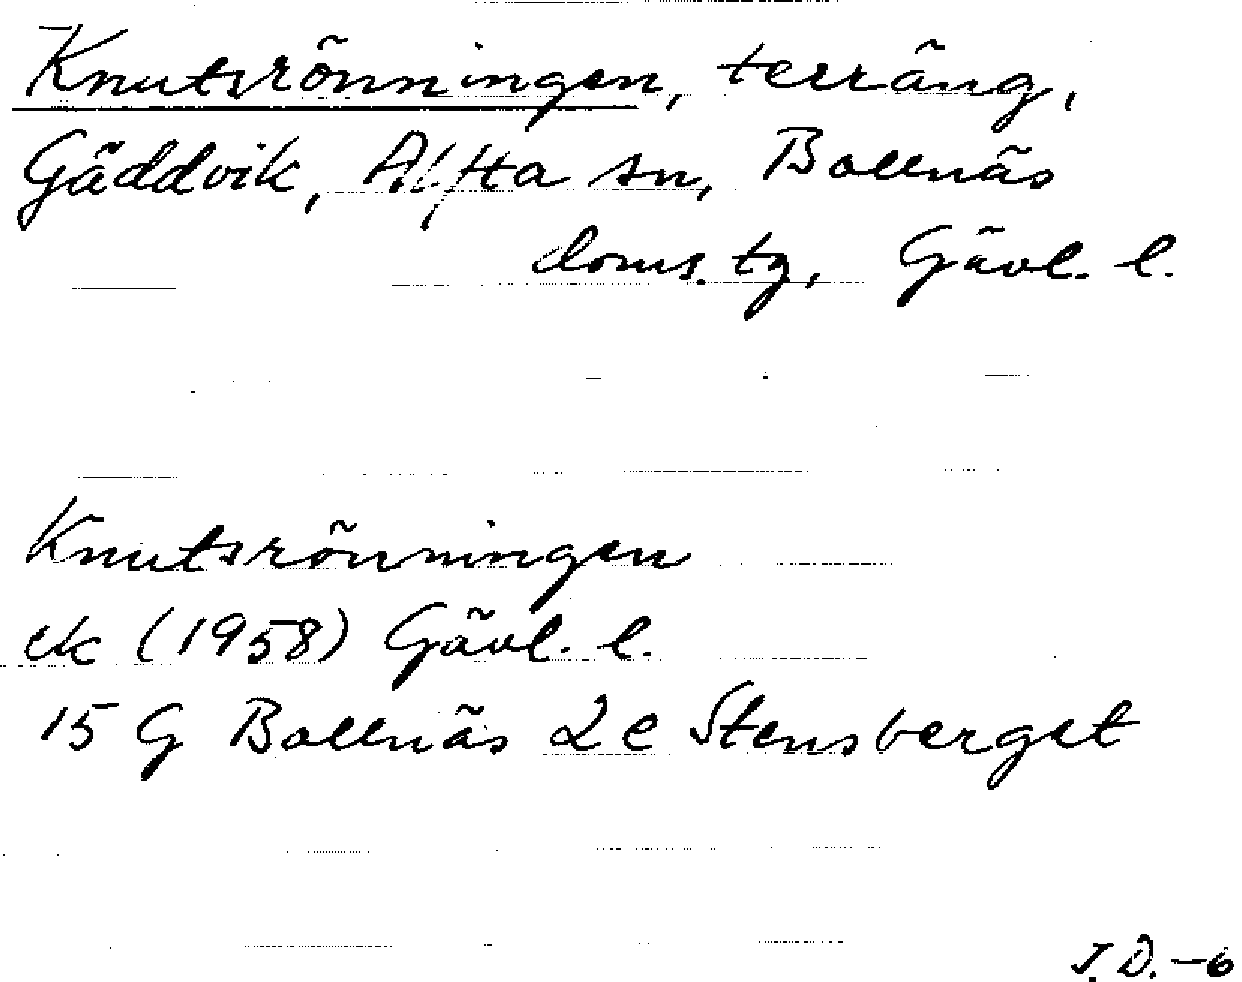 Knutsrönningen, terräng,
Gäddvik, Alfta sn, Bollnäs
doms. tg, Gävl. l.
Knutsrönningen
ek (1958) Gävl. l.
15 G Bollnäs 2e Stensberget
J. D. -6